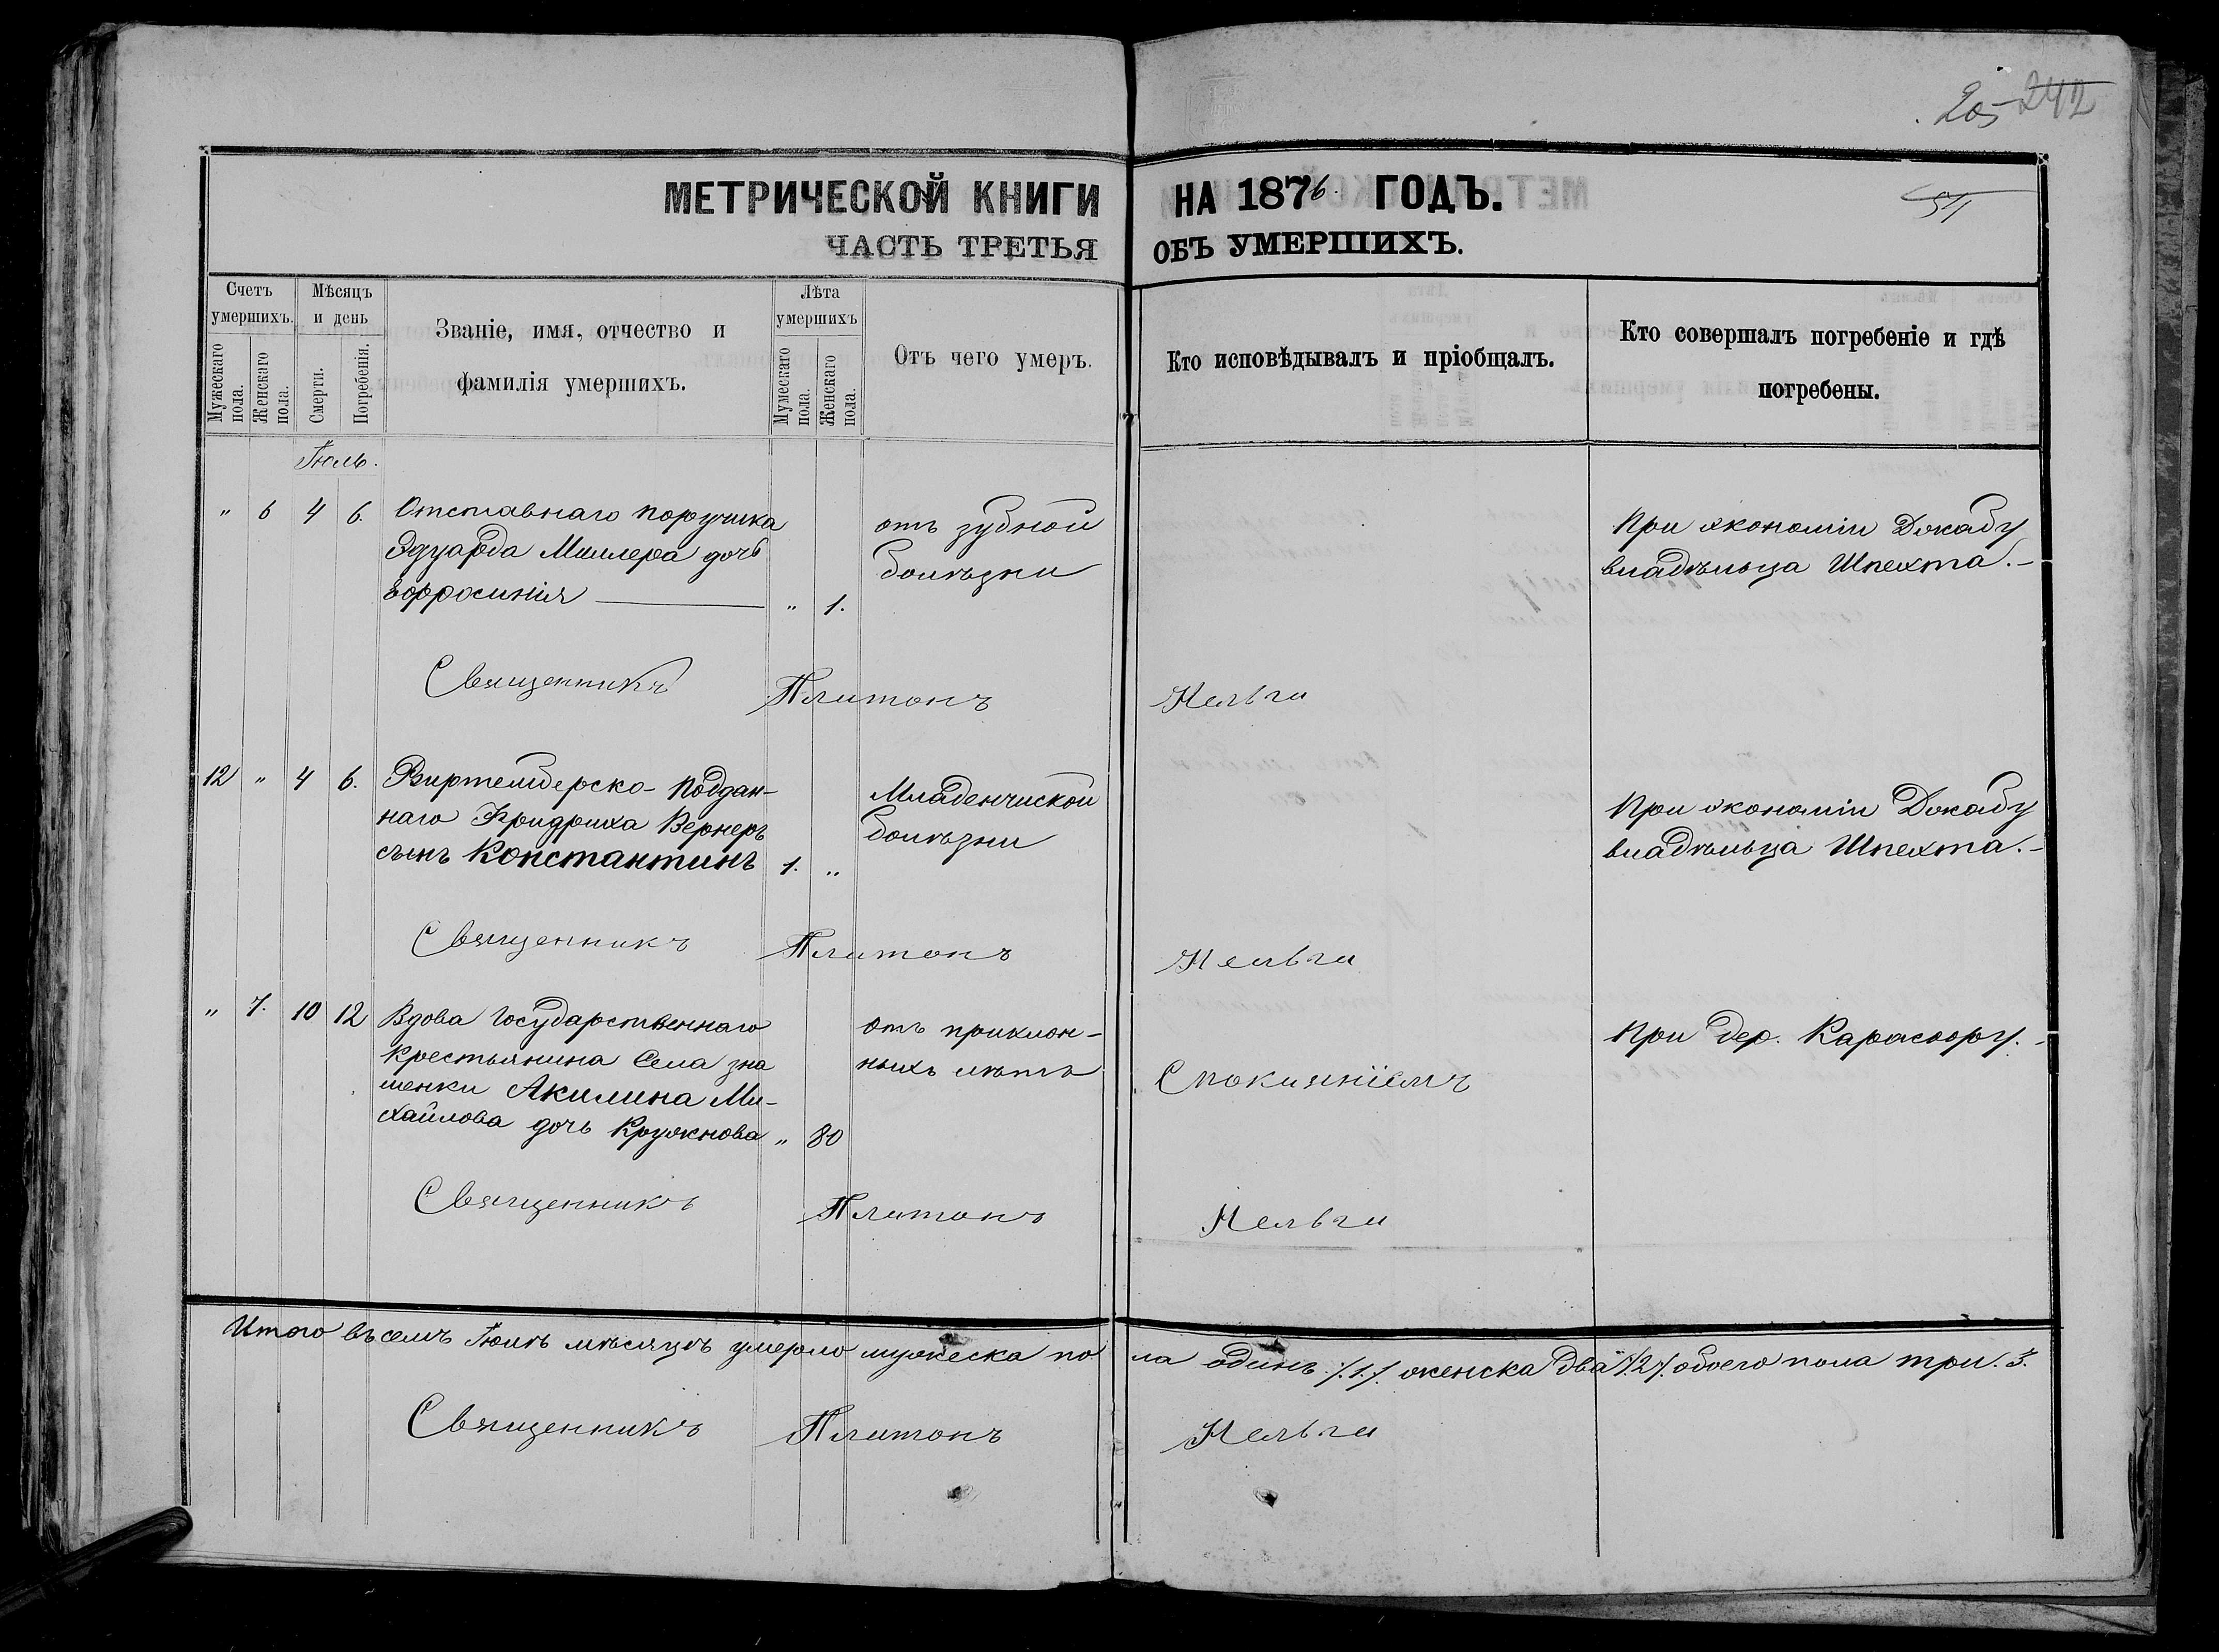 205 242
МЕТРИЧЕСКОЙ КНИГИ НА 1876. ГОДЪ.
54
ЧАСТЬ ТРЕТЬЯ ОБЪ УМЕРШИХЪ.
Счетъ умершихъ.
Мужескаго пола.
Женскаго пола.
Мѣсяцъ и день
Смерти.
Погребенія.
Званіе, имя, отчество и
фамилія умершихъ.
Лѣта умершихъ
Мужескаго пола.
Женскаго пола.
Отъ чего умеръ.
Кто исповѣдывалъ и пріобщалъ.
Кто совершалъ погребеніе и гдѣ
погребены.
Іюль.
" 6 4 6. Отставнаго поручика
Эдуарда Миллера дочь
Ефросинія " 1.
отъ зубной
болѣзни
При экономіи Джабу
владѣльца Шпехта.-
Священникъ Платонъ
12 " 4 6. Виртембергско-поддан-
наго Фридриха Вернеръ
сынъ Константинъ 1. "
Младенчиской
болѣзни
При экономіи Джабу
владѣльца Шпехта.-
Священникъ Платонъ
" 7. 10 12 Вдова Государственнаго
крестьянина Села зна
менки Акилина Ми-
хайлова дочь Кружнова " 80
отъ приклон-
ныхъ лѣтъ
При дер. Карасогру.-
Священникъ Платонъ
Итого въ семъ Іюлѣ мѣсяцѣ умерло мужеска по ла одинъ /.1./ женска два /.2/. обоего пола три. 3.
Священникъ Платонъ